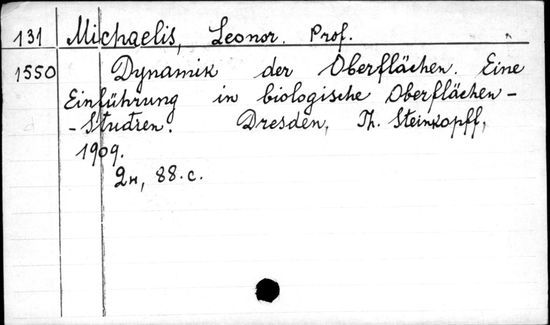 131 Michaelis, Leonor. Prof.
1550 Dynamik der Oberflächen. Eine
Einführung in biologische Oberflächen-
-Studien. Dresden, Th. Steinkopff,
1909.
2н, 88.с.